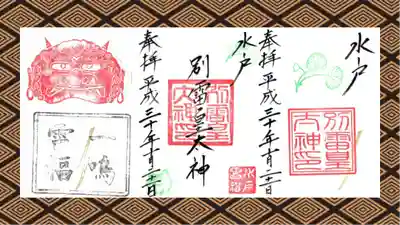 水戸
奉拝 平成三十年十月二十二日
水戸
別雷皇太神
奉拝 平成三十年十月二十二日
別雷皇
太神印
別雷皇
太神印
一鳴
雷福